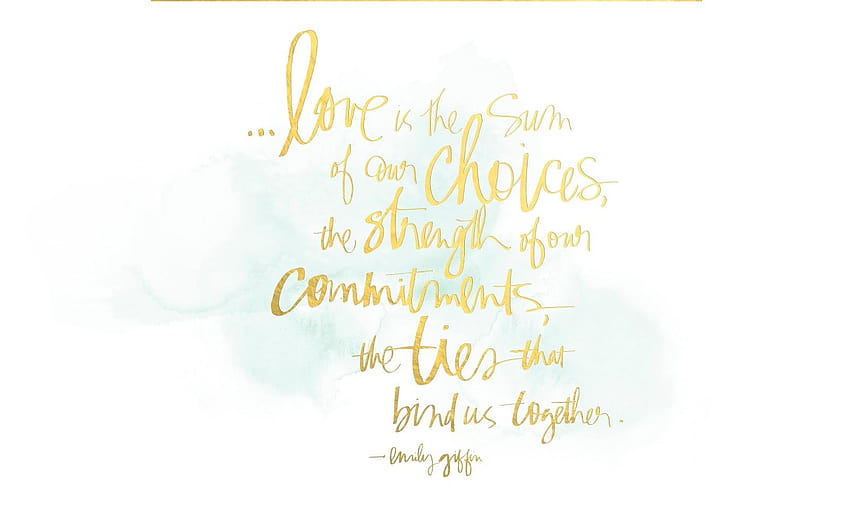 ...love is the Sum
of our choices,
the strength of our
commitments,
the ties that
bind us together.
- emily giffin